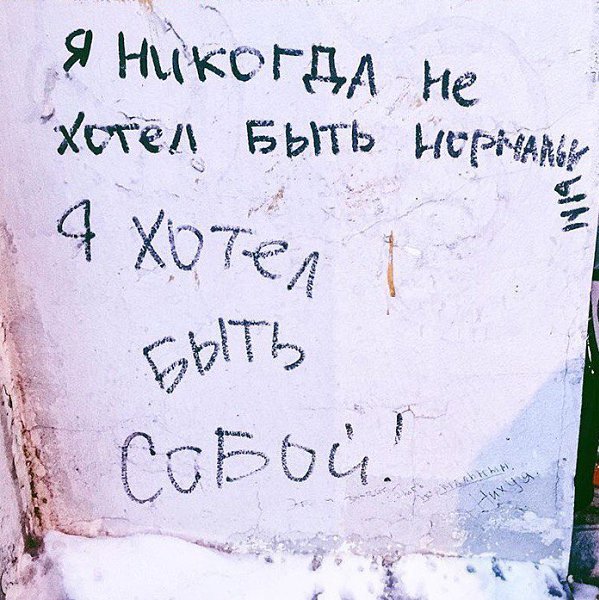 Я НИКОГДА НЕ
ХОТЕЛ БЫТЬ НОРМАЛЬНЫМ
Я ХОТЕЛ
БЫТЬ
СОБОЙ!